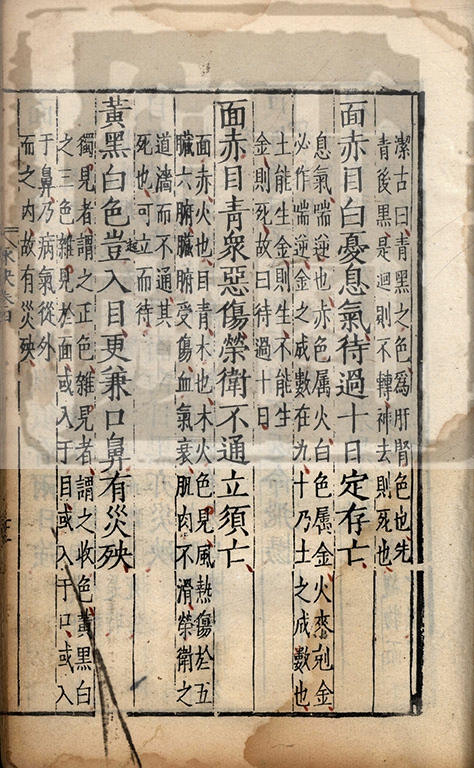 潔古曰青黑之色爲肝腎色也先
青後黒是迴則不轉神去則死也
面赤目白憂息氣待過十日定存亡
息氣喘逆也赤色属火白色屬金火來剋金
必作喘逆金之成數在九十乃土之成數也
土能生金則生不能生
金則死故曰待過十日
面赤目靑衆惡傷榮衛不通立須亡
面赤火也目青木也木火色見風熱傷於五
臟六腑臟腑受傷血氣衰肌肉不滑榮衛之
道濇而不通其
死也可立而待
黃黑白色豈入目更兼口鼻有災殃
起
獨見者謂之正色雜見者謂之收色黄黑白
之三色雜見於面或入于目或入于口或入
于鼻乃病氣從外
而之内故有災殃